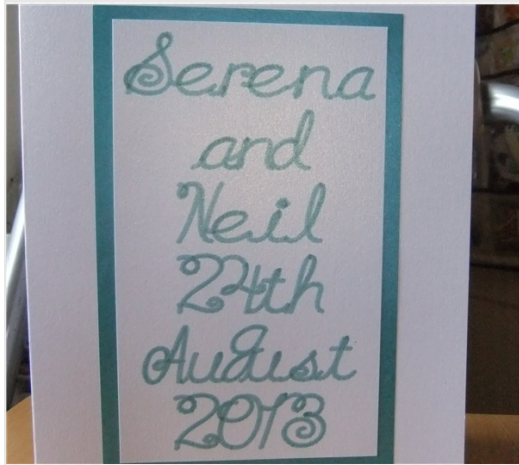 Serena
and
Neil
24th
August
2013